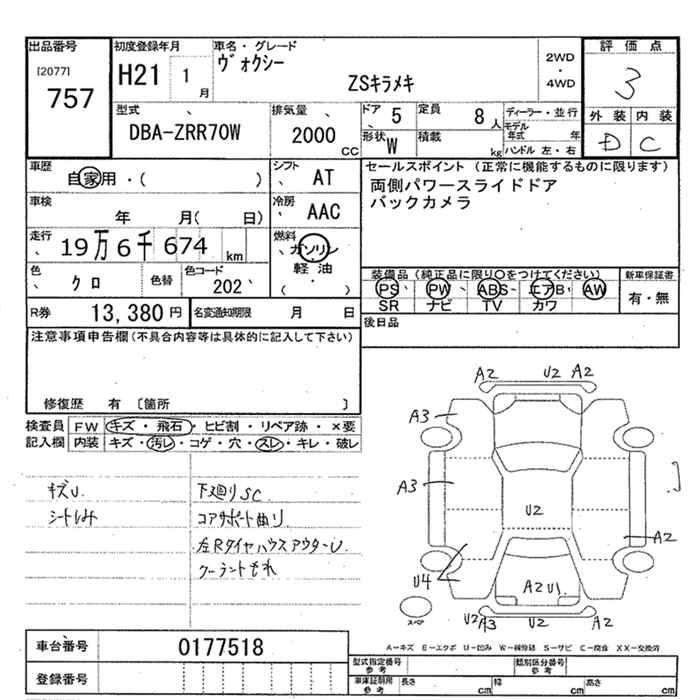 出品番号
[2077]
757
初度登録年月
H21 1 月
車名・グレード
ヴォクシー
ZSキラメキ
2WD
・
4WD
評価点
3
外装 内装
D C
型式
DBA-ZRR70W
排気量
2000 CC
ドア 5
形状 W
定員 8 人
積載 kg
ディーラー・並行
モデル年式 年
ハンドル 左・右
車歴
自家用・( )
車検
年 月( 日)
走行
19万6千674 km
色
クロ
色替
色コード
202
R券 13,380 円
名変通知期限 月 日
シフト AT
冷房 AAC
燃料
ガソリン
軽油
( ・ )
セールスポイント (正常に機能するものに限ります)
両側パワースライドドア
バックカメラ
装備品 (純正品に限り○をつけてください)
PS PW ABS エアB AW
SR ナビ TV カワ
新車保証書
有・無
後日品
注意事項申告欄(不具合内容等は具体的に記入して下さい)
修復歴 有 〔箇所 〕
検査員記入欄
FW キズ・飛石・ヒビ割・リペア跡・×要
内装 キズ・汚レ・コゲ・穴・スレ・キレ・破レ
キズU
シートしみ
下廻りSC
コアサポート曲り
左Rタイヤハウスアウター U
クーラントもれ
A2 U2 A2
A3
A3
U2
A2
U4
A2 U1
U2 A3 U2 A2
スペア
A-キズ E-エクボ U-凹み W-補修跡 S-サビ C-腐食 XX-交換済
車台番号 0177518
登録番号
型式指定番号 参考
類別区分番号 参考
車庫証明用 参考
長さ cm
幅 cm
高さ cm